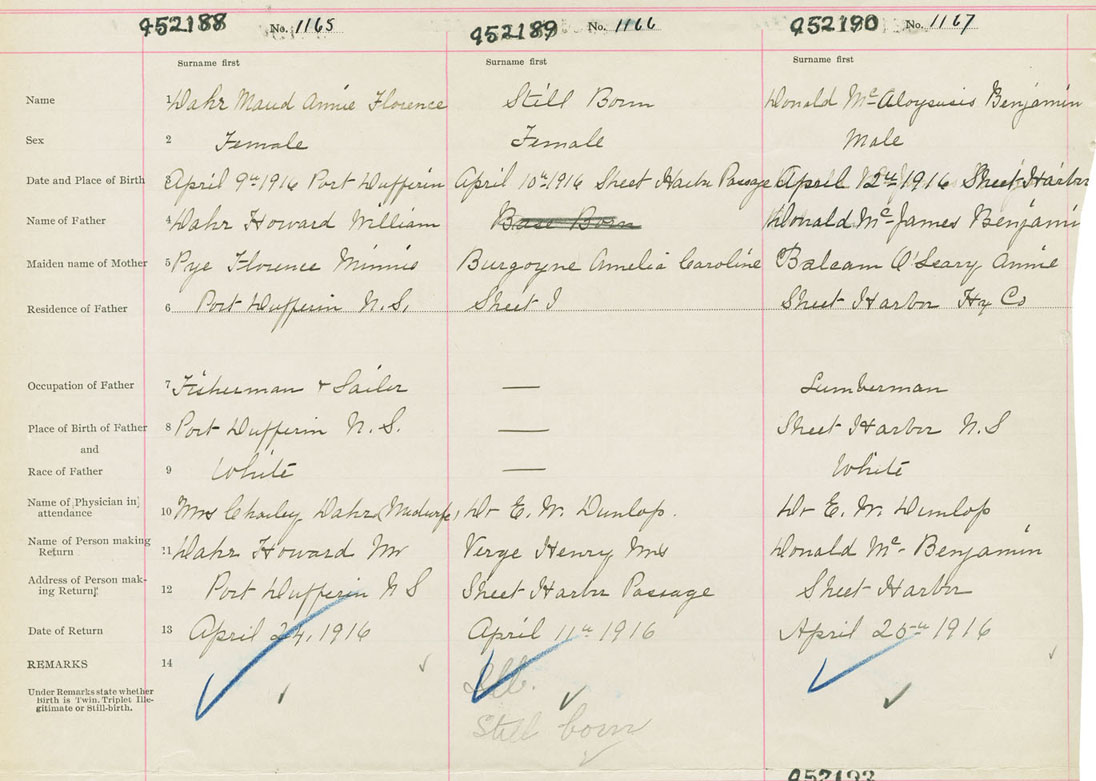 952188 No. 1165 952189 No. 1166 952190 No. 1167
Surname first Surname first Surname first
Name 1 Dahr Maud Annie Florence Still Born Donald Mc Aloysusis Benjamin
Sex 2 Female Female Male
Date and Place of Birth 3 April 9th 1916 Port Dufferin April 10th 1916 Sheet Harbor Passage April 12th 1916 Sheet Harbor
Name of Father 4 Dahr Howard William Base Born Donald Mc James Benjamin
Maiden name of Mother 5 Pye Florence Minnie Burgoyne Amelia Caroline Balcam O'Leary Annie
Residence of Father 6 Port Dufferin N.S. Sheet Sheet Harbor Hx Co
Occupation of Father 7 Fisherman + Sailor — Lumberman
Place of Birth of Father 8 Port Dufferin N.S. — Sheet Harbor N.S
and
Race of Father 9 White — White
Name of Physician in 10 Mrs Charley Dahr (Midwife) Dr E. W. Dunlop. Dr E. W. Dunlop
attendance
Name of Person making 11 Dahr Howard Mr Verge Henry Mrs Donald Mc Benjamin
Return
Address of Person mak- 12 Port Dufferin N S Sheet Harbor Passage Sheet Harbor
ing Return
Date of Return 13 April 24, 1916 April 11th 1916 April 20th 1916
REMARKS 14 Ill.
Under Remarks state whether
Birth is Twin, Triplet Ille-
gitimate or Still-birth.
Still born
952193